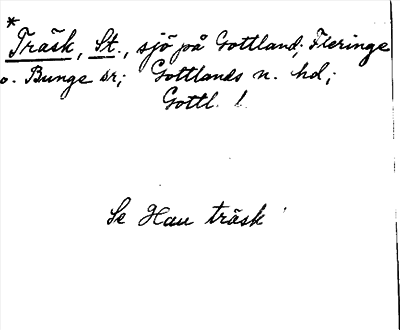 *
Träsk, St., sjö på Gottland; Fleringe
o. Bunge sr; Gottlands n. hd;
Gottl. l.
Se Hau träsk